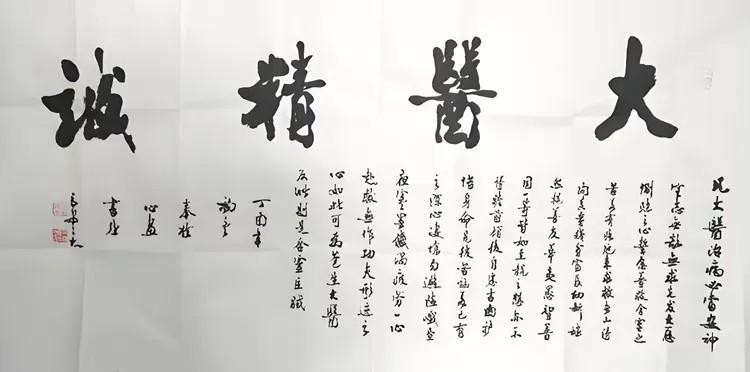 大醫精誠
凡大醫治病必當安神
定志無欲無求先發大慈
惻隱之心誓願普救含靈之
苦若有疾厄來求救者不得
問其貴賤貧富長幼妍蚩
怨親善友華夷愚智普
同一等皆如至親之想亦不
得瞻前顧後自慮吉凶護
惜身命見彼苦惱若己有
之深心悽愴勿避險巇晝
夜寒暑飢渴疲勞一心
赴救無作功夫形迹之
心如此可為蒼生大醫
反此則是含靈巨賊
丁酉年